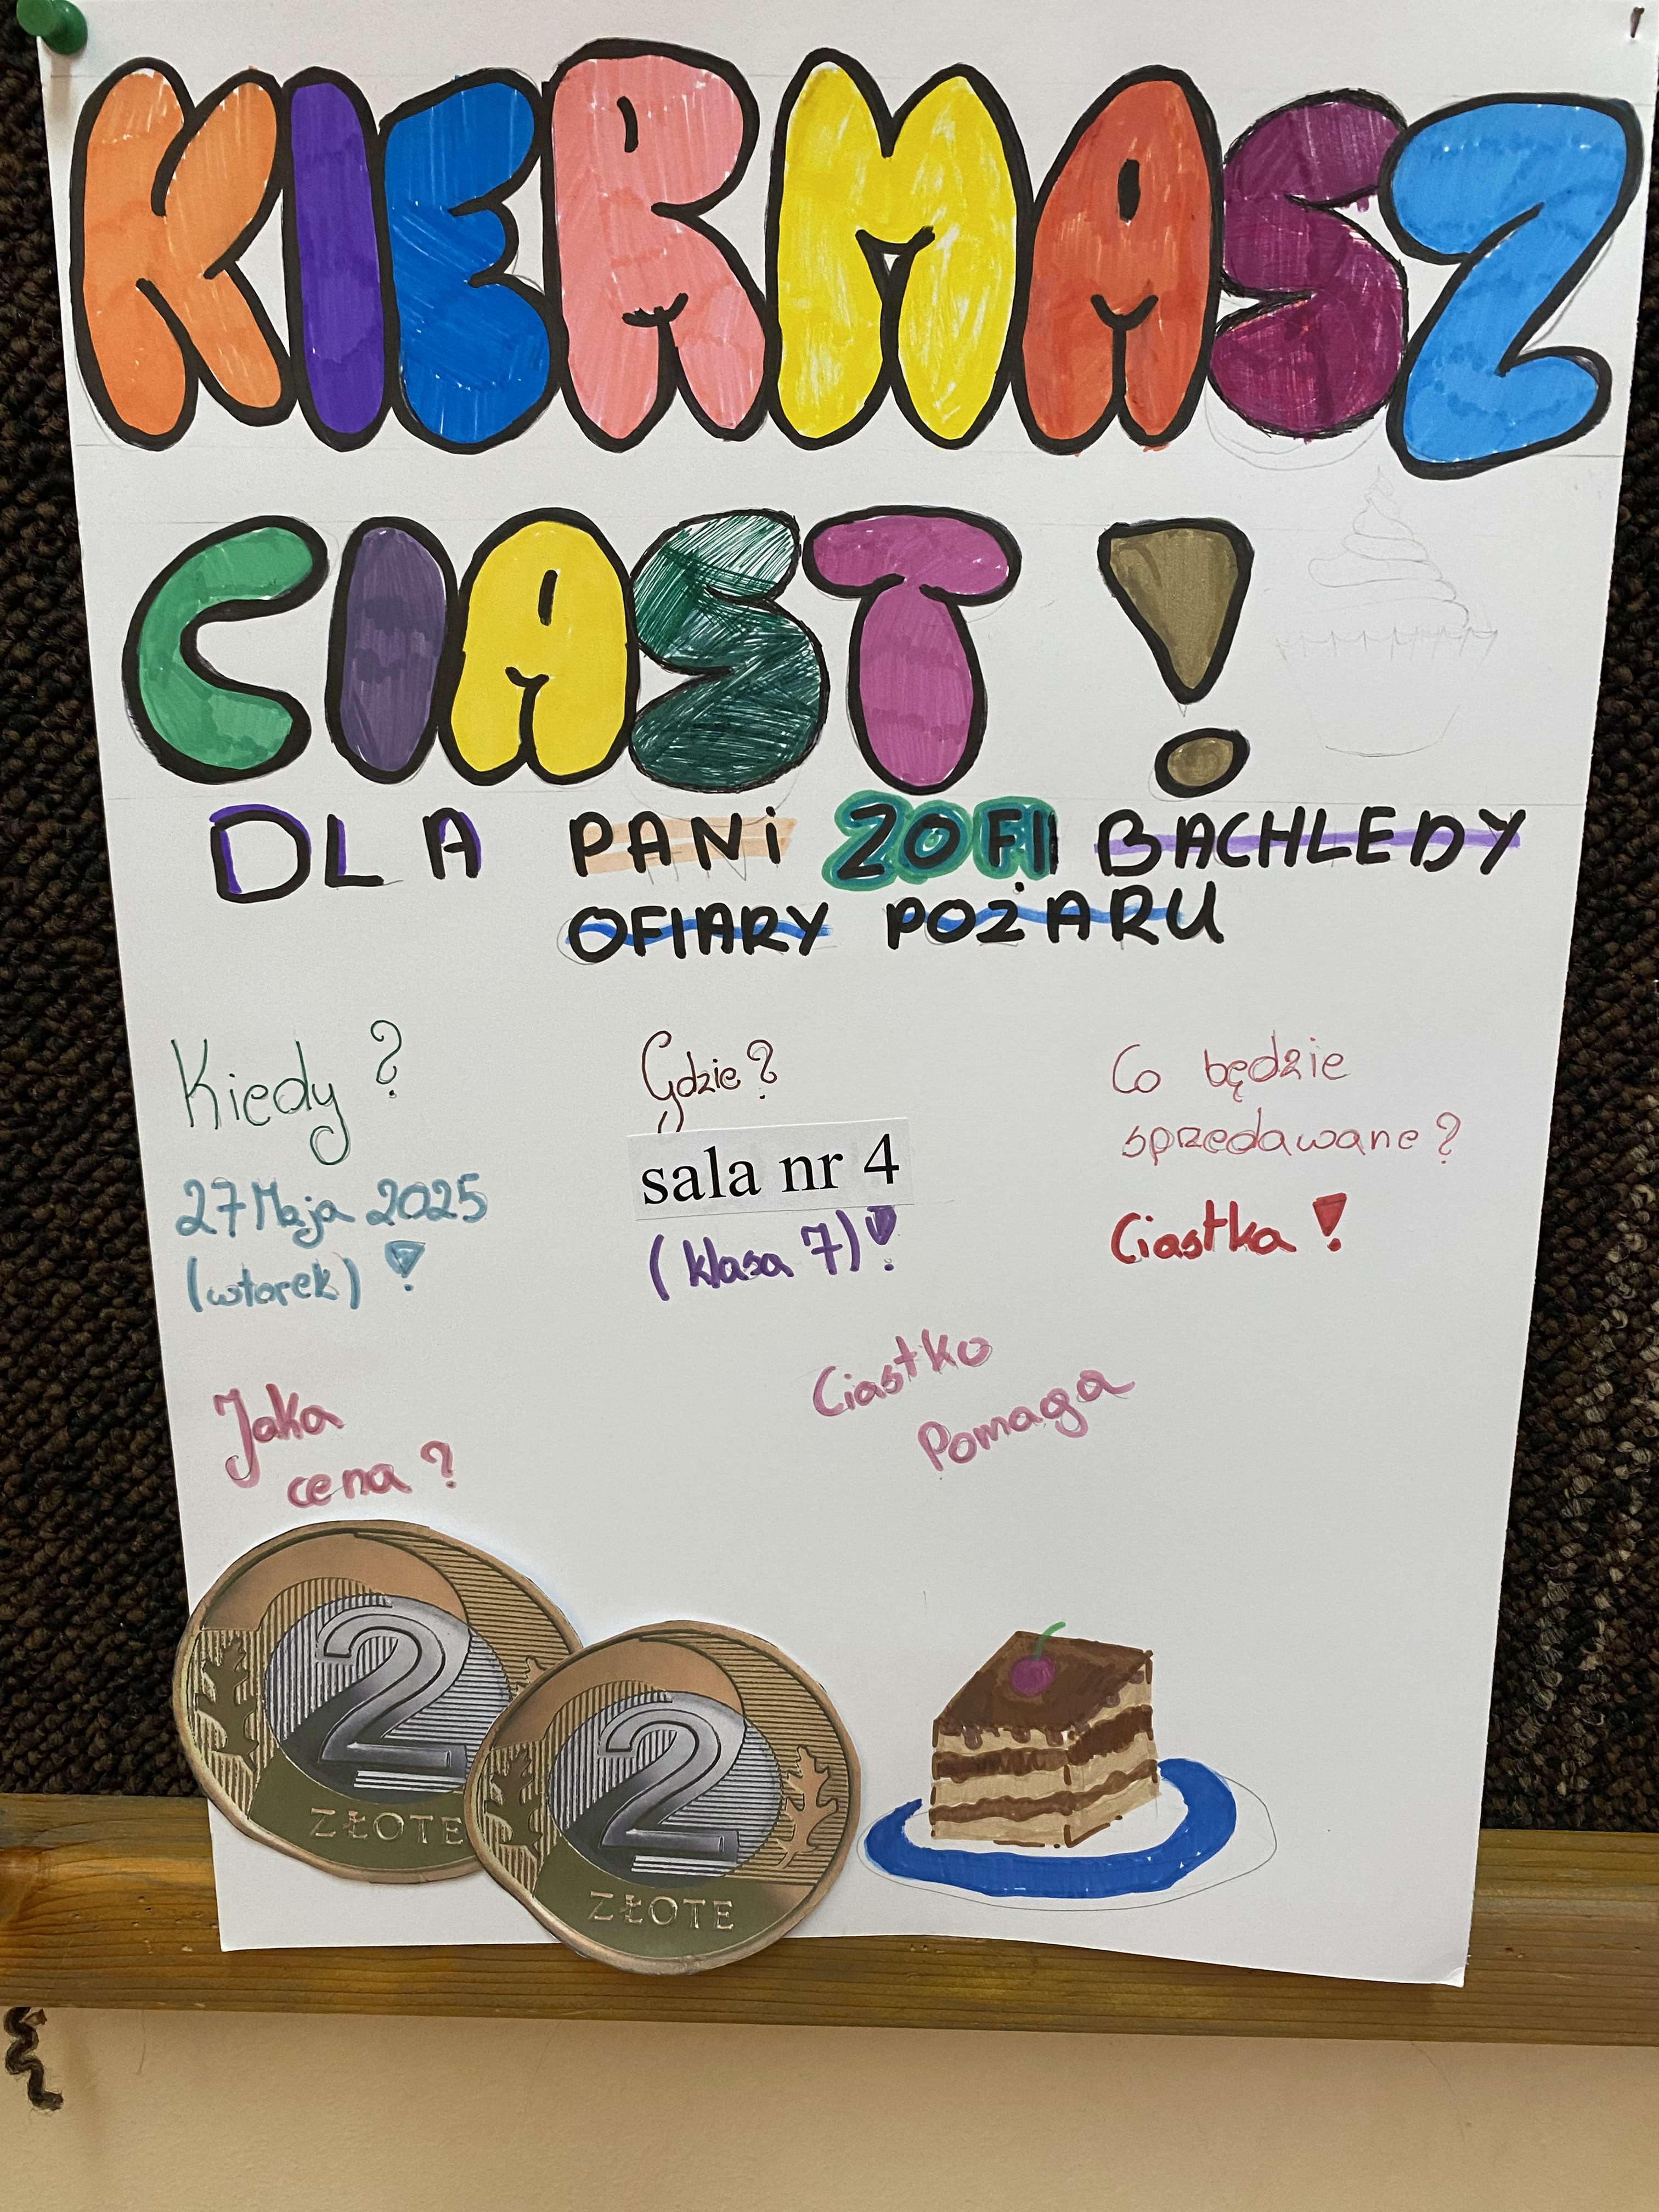 KIERMASZ
CIAST!
DLA PANi ZOFII BACHLEDY
OFIARY POŻARU
Kiedy?
27 Maja 2025
(wtorek)!
Gdzie?
sala nr 4
(klasa 7)!
Co będzie
sprzedawane?
Ciastka!
Jaka
cena?
Ciastko
Pomaga
2
ZŁOTE
2
ZŁOTE